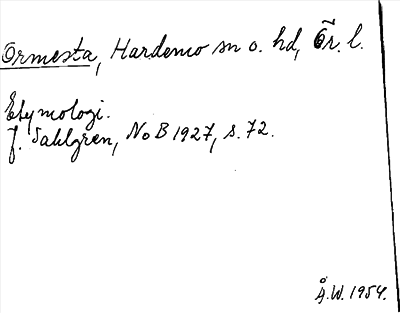 Ormesta, Hardemo sn o. hd, Ör. l.
Etymologi.
J. Sahlgren, NoB 1927, s. 72.
Å.W. 1954.